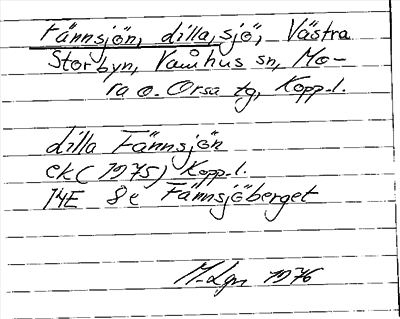 Fännsjön, dilla, sjö, Västra
Storbyn, Våmhus sn, Mo-
ra o. Orsa tg, Kopp. l.
dilla Fännsjön
ek (1975) Kopp. l.
14E 8e Fännsjöberget
M-Lgn 1976